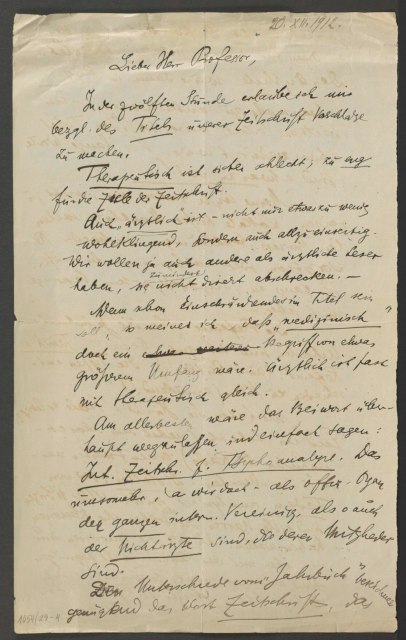 20. XII. 1912.
Lieber Herr Professor,
In der zwölften Stunde erlaube ich mir
bezgl. des Titels unserer Zeitschrift Vorschläge
zu machen.
Therapeutisch ist sicher schlecht, zu eng
für die Ziele der Zeitschrift.
Auch „ärztlich" ist – nicht nur etwas zu wenig
wohlklingend, sondern auch allzu einseitig.
Wir wollen ja auch andere als ärztliche Leser
haben, sie zumindest nicht direkt abschrecken. –
Wenn schon Einschränkendes im Titel sein
soll, so meine ich, daß „medizinisch"
doch ein Begriff von etwas
größerem Umfang wäre. Ärztlich ist fast
mit therapeutisch gleich.
Am allerbesten wäre das Beiwort über-
haupt wegzulassen und einfach sagen:
Int. Zeitschr. f. Psychoanalyse. Das
umsomehr, da wir doch – als offiz. Organ
der ganzen intern. Vereinig., also auch
der Nichtärzte sind, die deren Mitglieder
sind.
Den Unterschied vom „Jahrbuch"
genügend das Wort Zeitschrift, das
1054/29-4